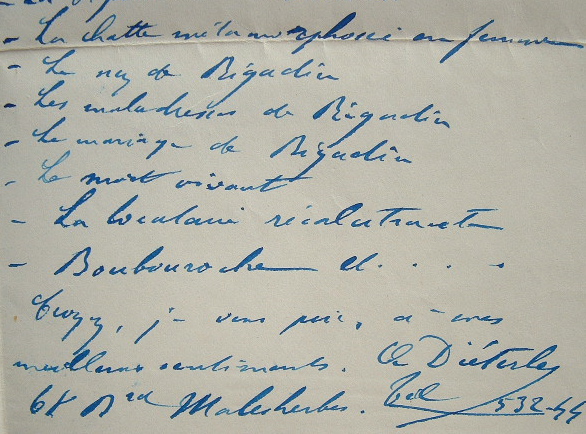 - La chatte métamorphosée en femme
- Le nez de Rigadin
- Les maladresses de Rigadin
- Le mariage de Rigadin
- Le mort vivant
- La locataire récalcitrante
- Boubouroche et . . . .
Croyez, je vous prie, à mes
meilleurs sentiments. A Diéterle
68 Brd Malesherbes. Tel 532-44